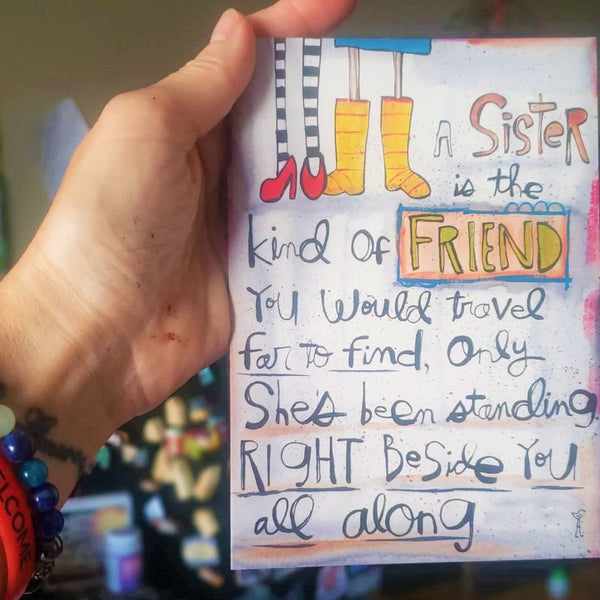 A SisTER
is the
kind of FRIEND
You Would travel
far to find, Only
She's been standing
RIGHT BeSide You
all along
WELCOME